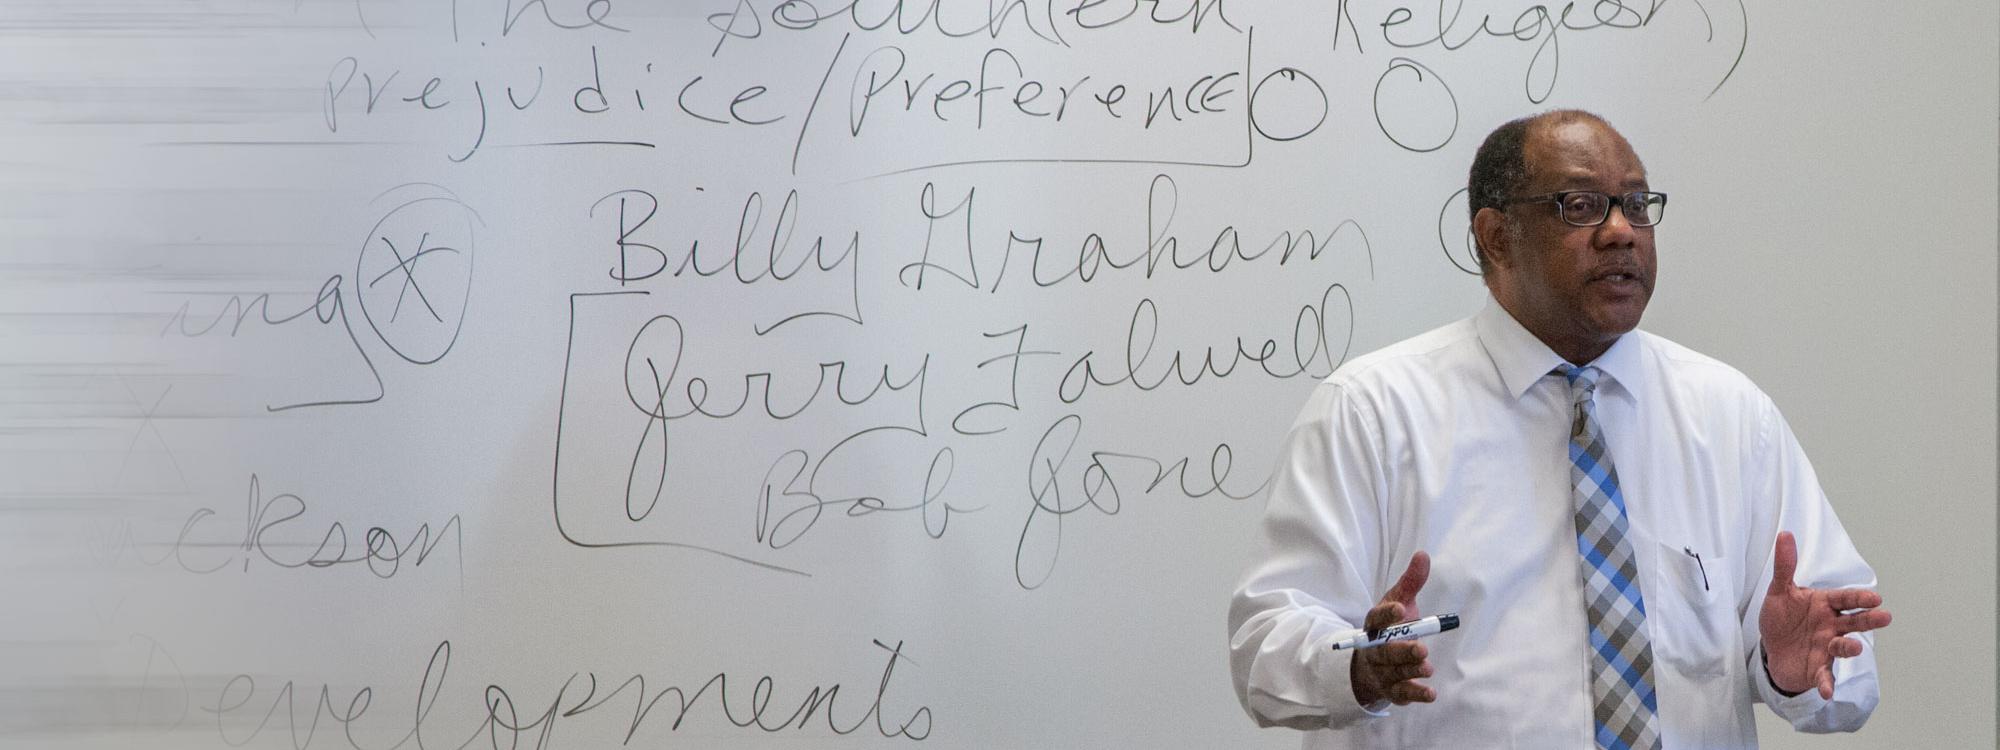 (The Southern Religion)
Prejudice/Preference
Billy Graham
ing X
Jerry Falwell
Bob Jone
ckson
Developments
EXPO